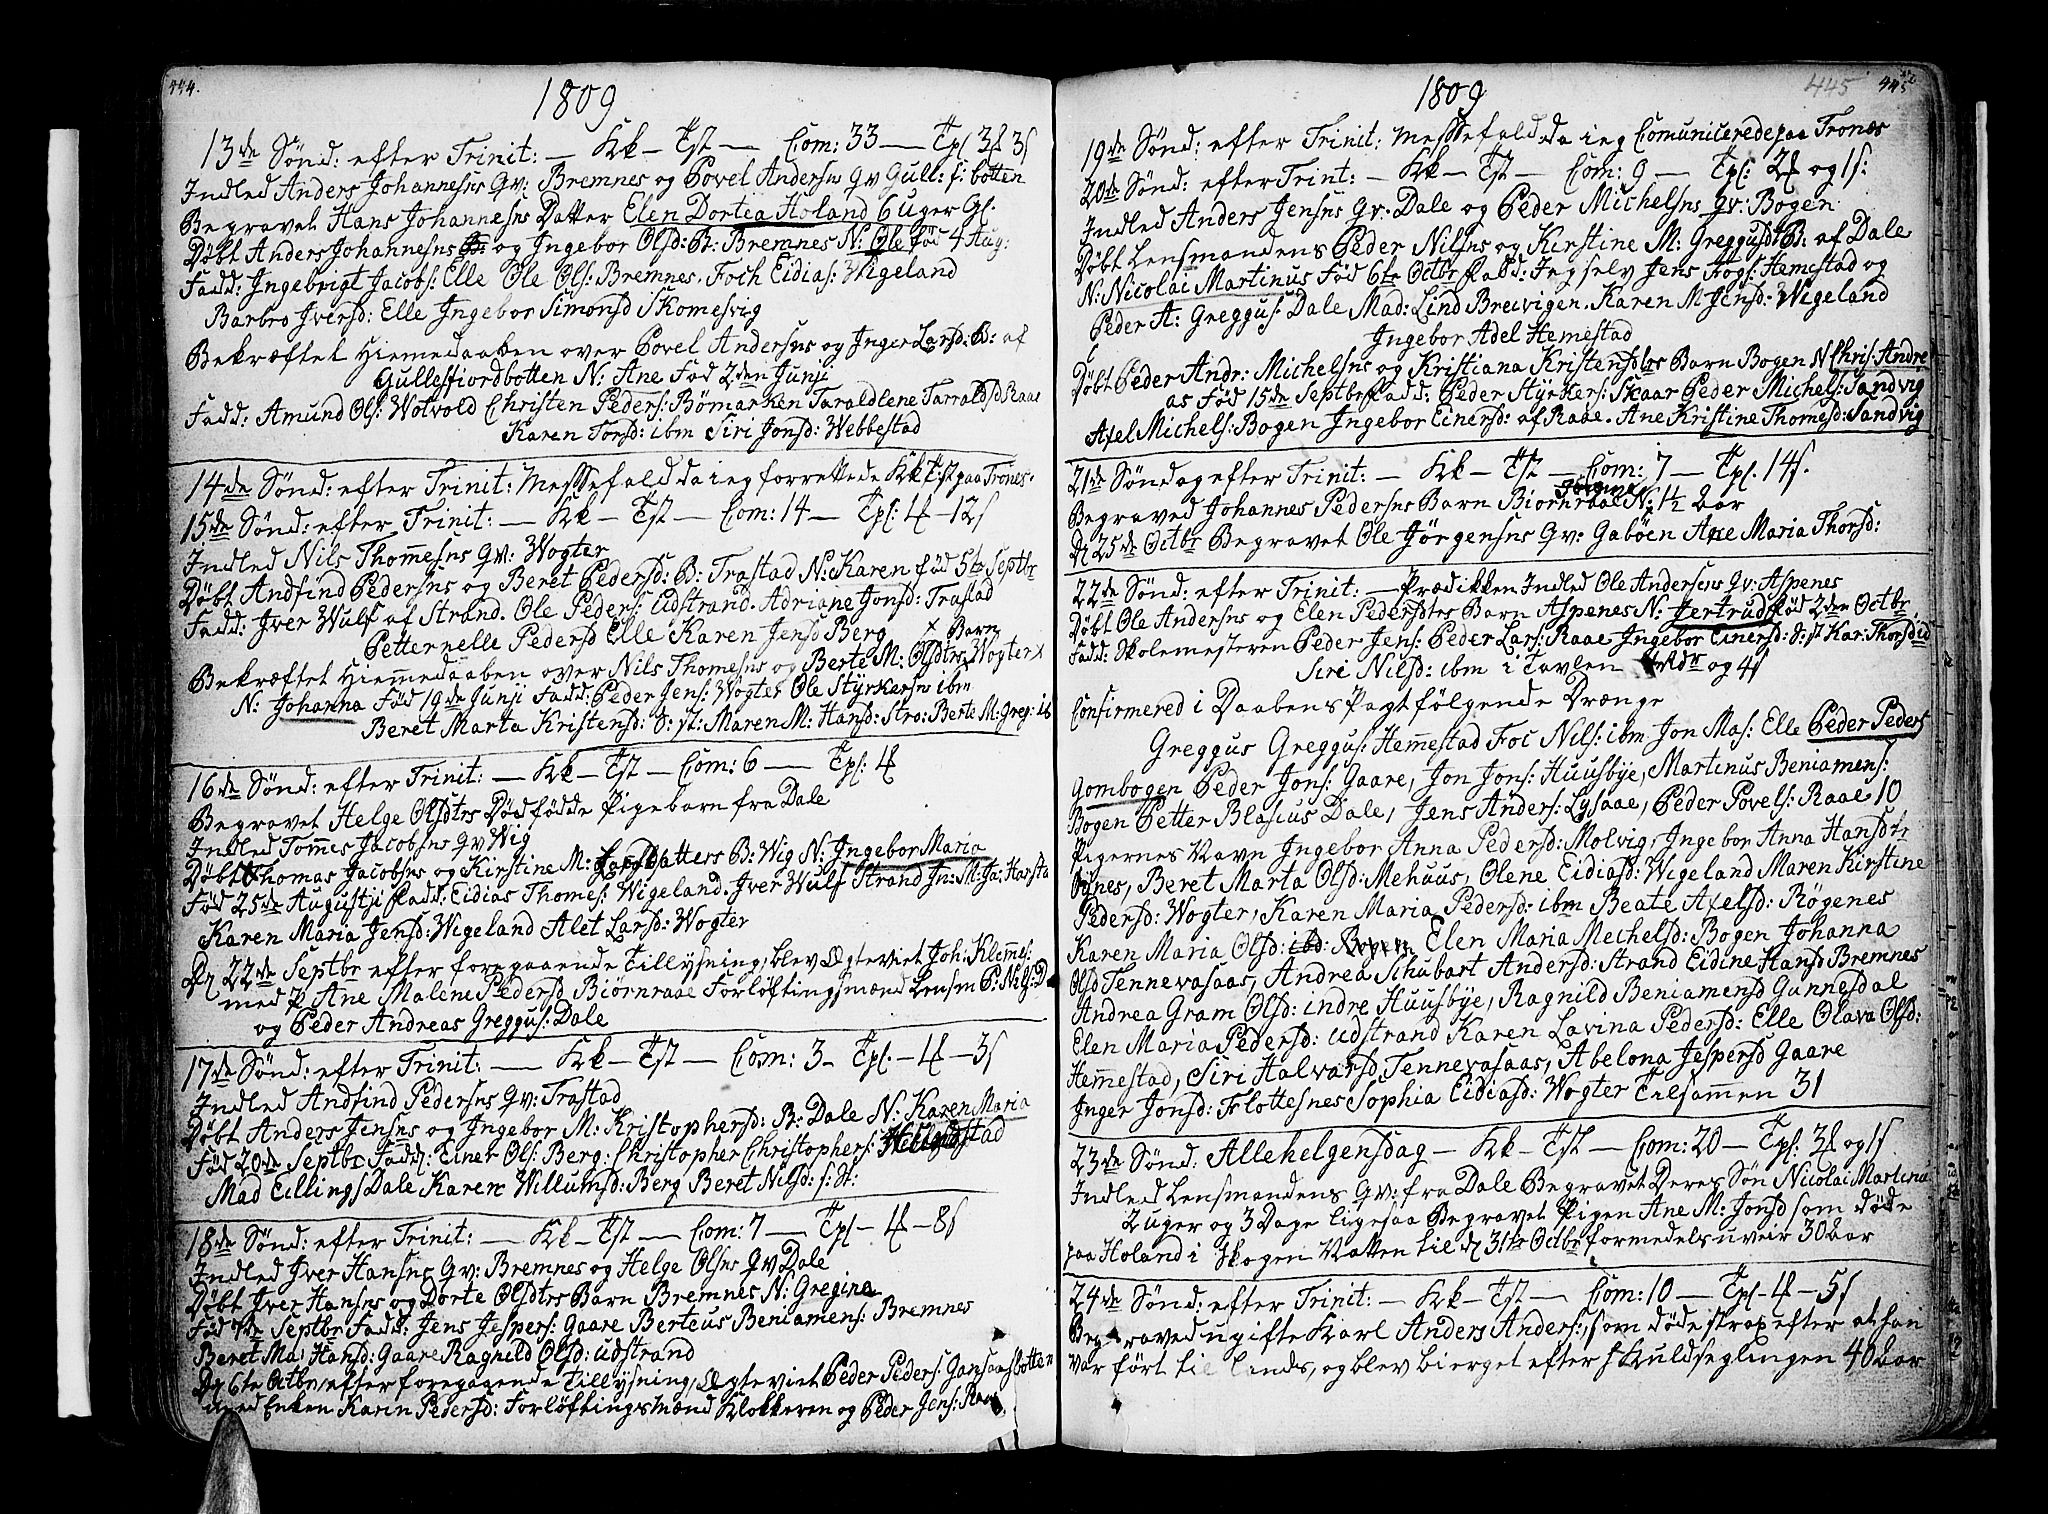 444.
1809
13de Sønd: efter Trinit: — Kk — Tst — Com: 33 — Tpl 3
Indled Anders Johannesns Qv: Bremnes og Povel Andersns Qv Gull: f: botten
Begravet Hans Johannesns Datter Elen Dortea Holand 6 Uger Gl.
Døbt Anders Johannesns og Ingebor Olsd: B: Bremnes N: Ole fød 4 Aug:
Fadd: Ingebrigt Jacobs: Elle Ole Ols: Bremnes. Foch Eidias: Wigeland
Barbro Iversd: Elle Ingebor Simonsd Skomesvig
Bekræftet Hiemedaaben over Povel Andersns og Inger Larsd: B: af
Gullesfiordbotten N: Ane Fød 2den Junji
Fadd: Amund Ols: Wotvold Christen Peders: Bømarken Taraldlene Tarraldsd Raae
Karen Torsd: ibm Siri Jonsd: Webbestad
14de Sønd: efter Trinit: Messefald da ieg forrettede Kk Tst paa Trones.
15de Sønd: efter Trinit: — Kk — Tst — Com: 14 — Tpl: 4 — 12
Indled Nils Thomesns Qv: Wogter
Døbt Andfind Pedersns og Beret Pedersd: B: Trastad N: Karen fød 5te Septbr
Fadd: Iver Wulf af Strand. Ole Peders: Udstrand. Adriane Jonsd: Trastad
Petternelle Pedersd Elle Karen Jensd Berg x Barn
Bekræftet Hiemedaaben over Nils Thomesns og Berte M: Olsdtrs Wogter x
N: Johanna Fød 19de Junji Fadd: Peder Jens: Wogter Ole Styrkersns ibm
Beret Marta Kristensd: S: st: Maren M: Hansd: Stro: Berte M: Greg: ib
16de Sønd: efter Trinit: — Kk — Tst — Com: 6 — Tpl: 4
Begravet Helge Olsdtrs Dødfødde Pigebarn fra Dale
Indled Tommes Jacobsns Qv Wig
Døbt Thomas Jacobsns og Kirstine M: Larsdatters B: Wig N: Ingebor Maria
Fød 25de Augustji Fadd: Eidias Thomes: Wigeland. Iver Wulf Strand In: M: Ja: Harsta
Karen Maria Jensd: Wigeland Alet Larsd: Wogter
D 22de Septbr efter foregaaende Tillysning, blev Ægteviet Joh: Klemes:
med P Ane Malene Pedersd Biørnraae Forløftingsmænd Lensm P: Nils: D
og Peder Andreas Greggus: Dale
17de Sønd: efter Trinit: — Kk — Tst — Com: 3 — Tpl. — 4 — 3
Indled Andfind Pedersns Qv: Trastad
Døbt Anders Jensns og Ingebor M: Kristophersd: B: Dale N: Karen Maria
Fød 20de Septbr Fadd: Einer Ols: Berg: Christopher Christophers:
Mad Eillings Dale Karen Willumsd: Berg Beret Nilsd: S: St:
18de Sønd: efter Trinit: — Kk — Tst — Com: 7 — Tpl — 4 — 8
Indled Iver Hansns Qv: Bremnes og Helge Olsns Qv Dale
Døbt Iver Hansns og Dorte Olsdtrs Barn Bremnes N: Gregina
Fød 7de Septbr Fadd: Jens Jespers: Gaare Berteus Beniamens: Bremnes
Beret Ma: Hansd: Gaare Ragnild Olsd: Udstrand
D 6te Octbr, efter foregaaende Tillysning, Ægteviet Peder Peders: Gansaasbotten
med Enken Karin Pedersd: Forløftingsmænd Klokkeren og Peder Jens: Raae
445
445
1809
19de Sønd: efter Trinit: Messefald da ieg Comunicerede paa Trones
20de Sønd: efter Trint: — Kk — Tst — Com: 9 — Tpl: 2 og 1
Indled Anders Jensns Qv: Dale og Peder Michelsns Qv: Bogen
Døbt Lensmandens Peder Nilsns og Kirstine M: Greggusdt B: af Dale
N: Nicolai Martinus Fød 6te Octbr Fadd: Iegselv Jens Aogs: Hemestad og
Peder A: Greggus: Dale Mad: Lind Breivigen. Karen M Jensd: Wigeland
Ingebor Adel Hemestad
Døbt Peder Andr: Michelsns og Kristiana Kristensdtrs Barn Bogen N Chris: Andre
as Fød 15de Septbr Fadd: Peder Styrkers: Skaar Peder Michels: Sandvig
Axel Michels: Bogen Ingebor Einersd: af Raae. Ane Kristine Thomesd: Sandvig
21de Søndag efter Trinit: — Kk — Tst — Com: 7 — Tpl. 14
Begraved Johannes Pedersns Barn Biørnraae N: 1½ aar
D 25de Octbr Begravet Ole Jørgensns Qv: Gabøen Ane Maria Thorsd:
22de Sønd: efter Trinit: — Prædikken Indled Ole Andersens Qv: Aspenes
Døbt Ole Andersns og Elen Pedersdtrs Barn Aspenes N: Jertrud fød 2den Octbr
Fadd: Skolemesteren Peder Jens: Peder Lars: Raae Ingebor Einersd: S: st Kar: Thorsd id
Siri Nilsd: ibm i Tavlen og 4
Confirmered i Daabens Pagt følgende Drænge
Greggus Greggus: Hemestad Foc Nils: ibm Jon Mas: Elle Peder Peders
Gombogen Peder Jons: Gaare, Jon Jons: Huusbye, Martinus Beniamens:
Bogen Petter Blasius Dale, Jens Anders: Lysaae, Peder Povels: Raae 10
Pigernes Navn Ingebor Anna Pedersd: Molvig, Ingebor Anna Hansdtr
Øynes, Beret Marta Olsd: Mehuus, Olene Eidiasd: Wigeland Maren Kirstine
Pedersd: Wogter, Karen Maria Pedersd: ibm Beate Axelsd: Røgenes
Karen Maria Olsd: ibd: Bogen Elen Maria Mechelsd: Bogen Johanna
Olsd Tennevasaas, Andrea Schubart Andersd: Strand Eidine Hansd Bremnes
Andrea Gram Olsd: indre Huusbye, Ragnild Beniamensd Gunnesdal
Elen Maria Pedersd: Udstrand Karen Lavina Pedersd: Elle Olava Olsd:
Hemestad, Siri Halvarsd Tennevasaas, Abelona Jespersd Gaare
Inger Jonsd: Flottesnes Sophia Eidiasd: Wogter Tilsammen 31
23de Sønd: Allehelgensdag — Kk — Tst — Com: 20 — Tpl: 3 og 1
Indled Lensmandens Qv: fra Dale Begravet Deres Søn Nicolai Martinu
2 uger og 3 Dage ligesaa Begravet Pigen Ane M: Jonsd som døde
paa Holand i Skogen Natten til d 31te Octbr formedels uveir 30 aar
24de Sønd: efter Trinit: — Kk — Tst — Com: 10 — Tpl — 4 — 5
Begraved ugifte Karl Anders Anders:, som døde strax efter at han
var ført til Lands, og blev bierget efter Kuldseglingen 40 aar